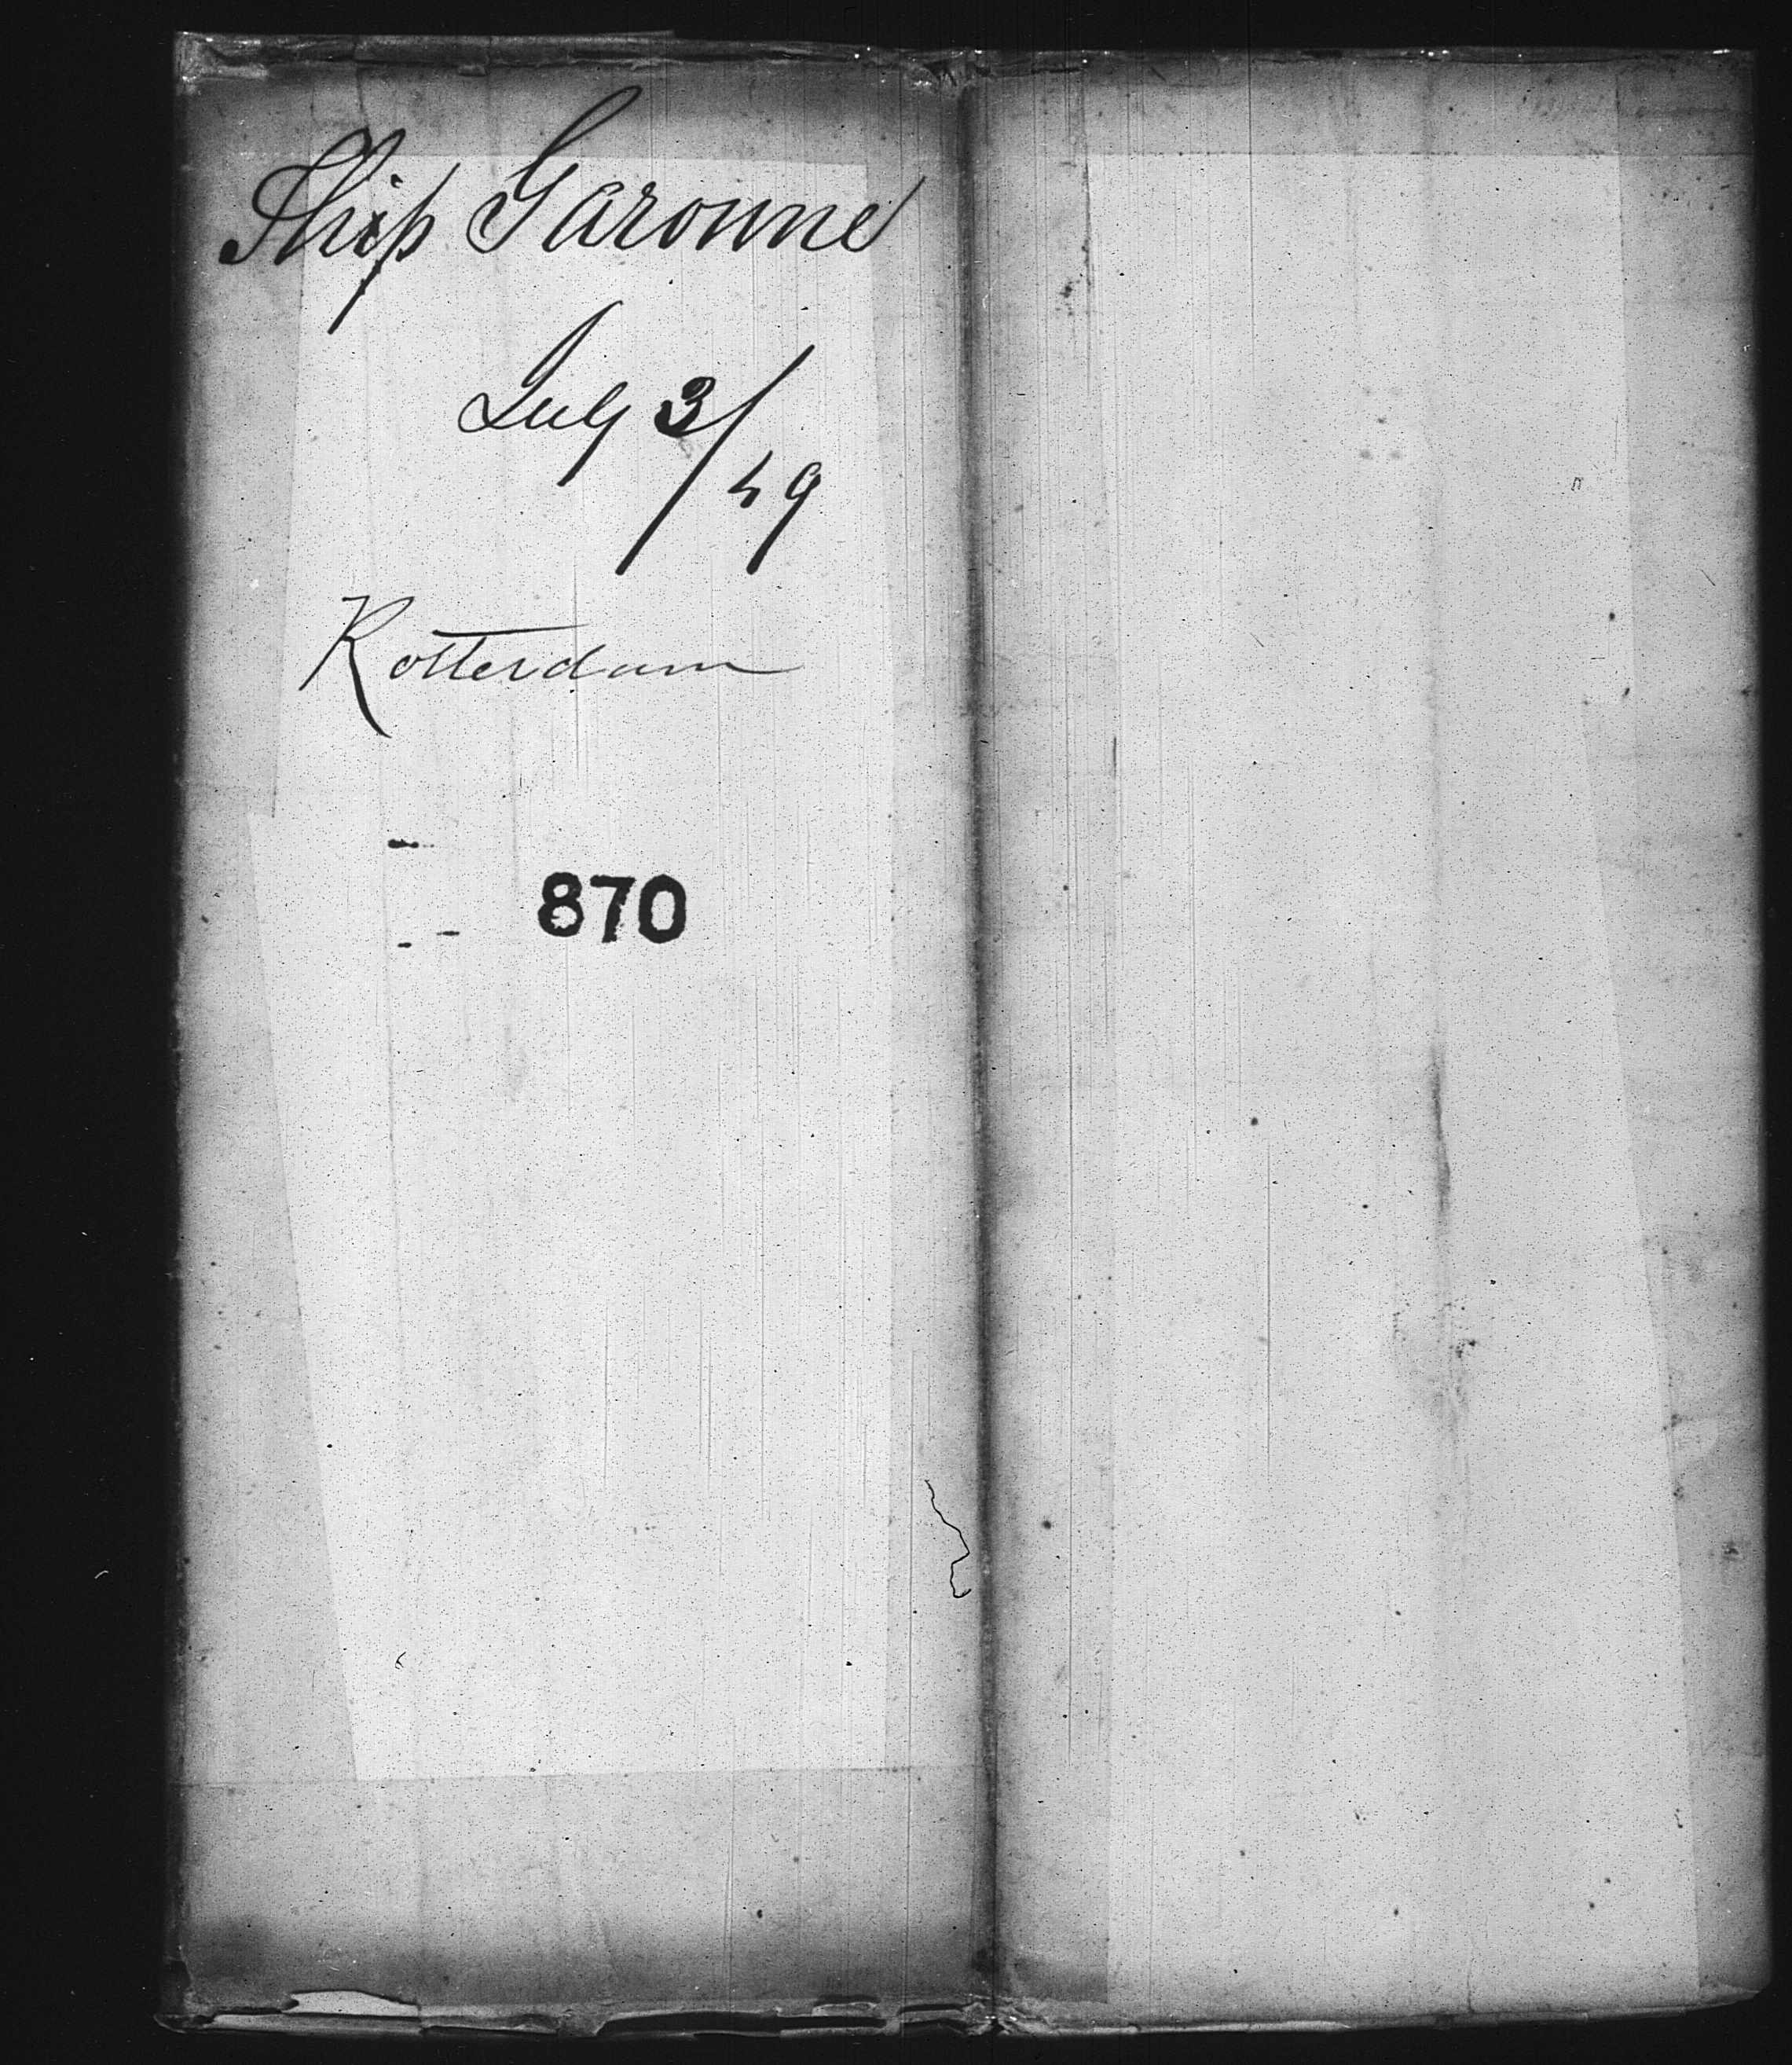 Ship Garonne
July 3/49
Rotterdam
870